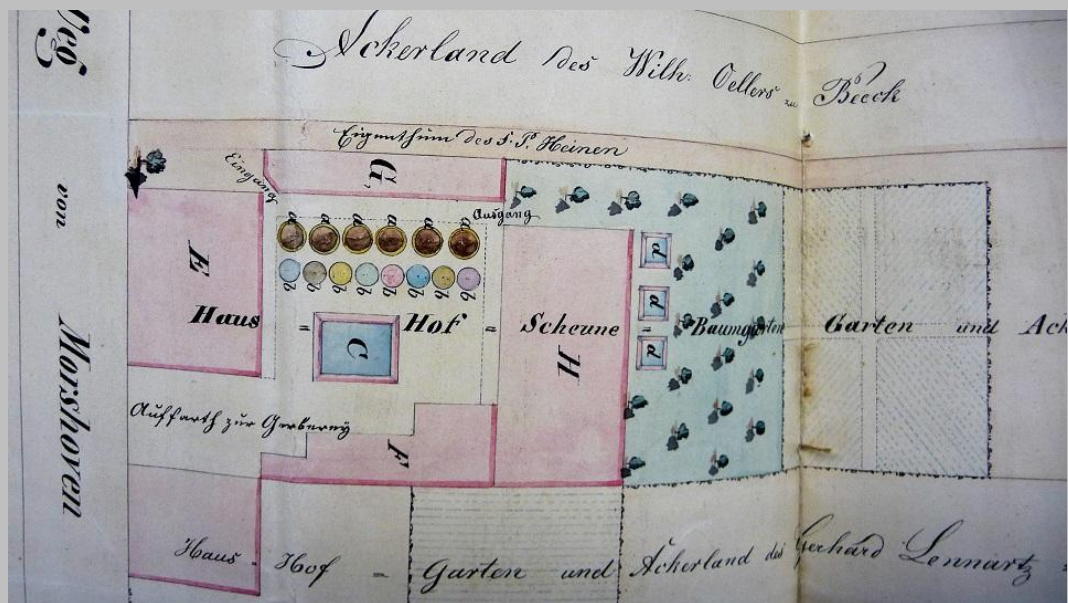 Weg von Morshoven
Ackerland des Wilh: Oellers zu Beeck
Eigenthum des S. P. Heinen
Eingang
G,
Ausgang
a a a a a a
b b b b b b b
E
Haus = Hof = Scheune = Baumgarten Garten und Ack
C
H
d
d
d
Auffarth zur Gerberey
F
Haus - Hof = Garten und Ackerland des Gerhard Lennartz =